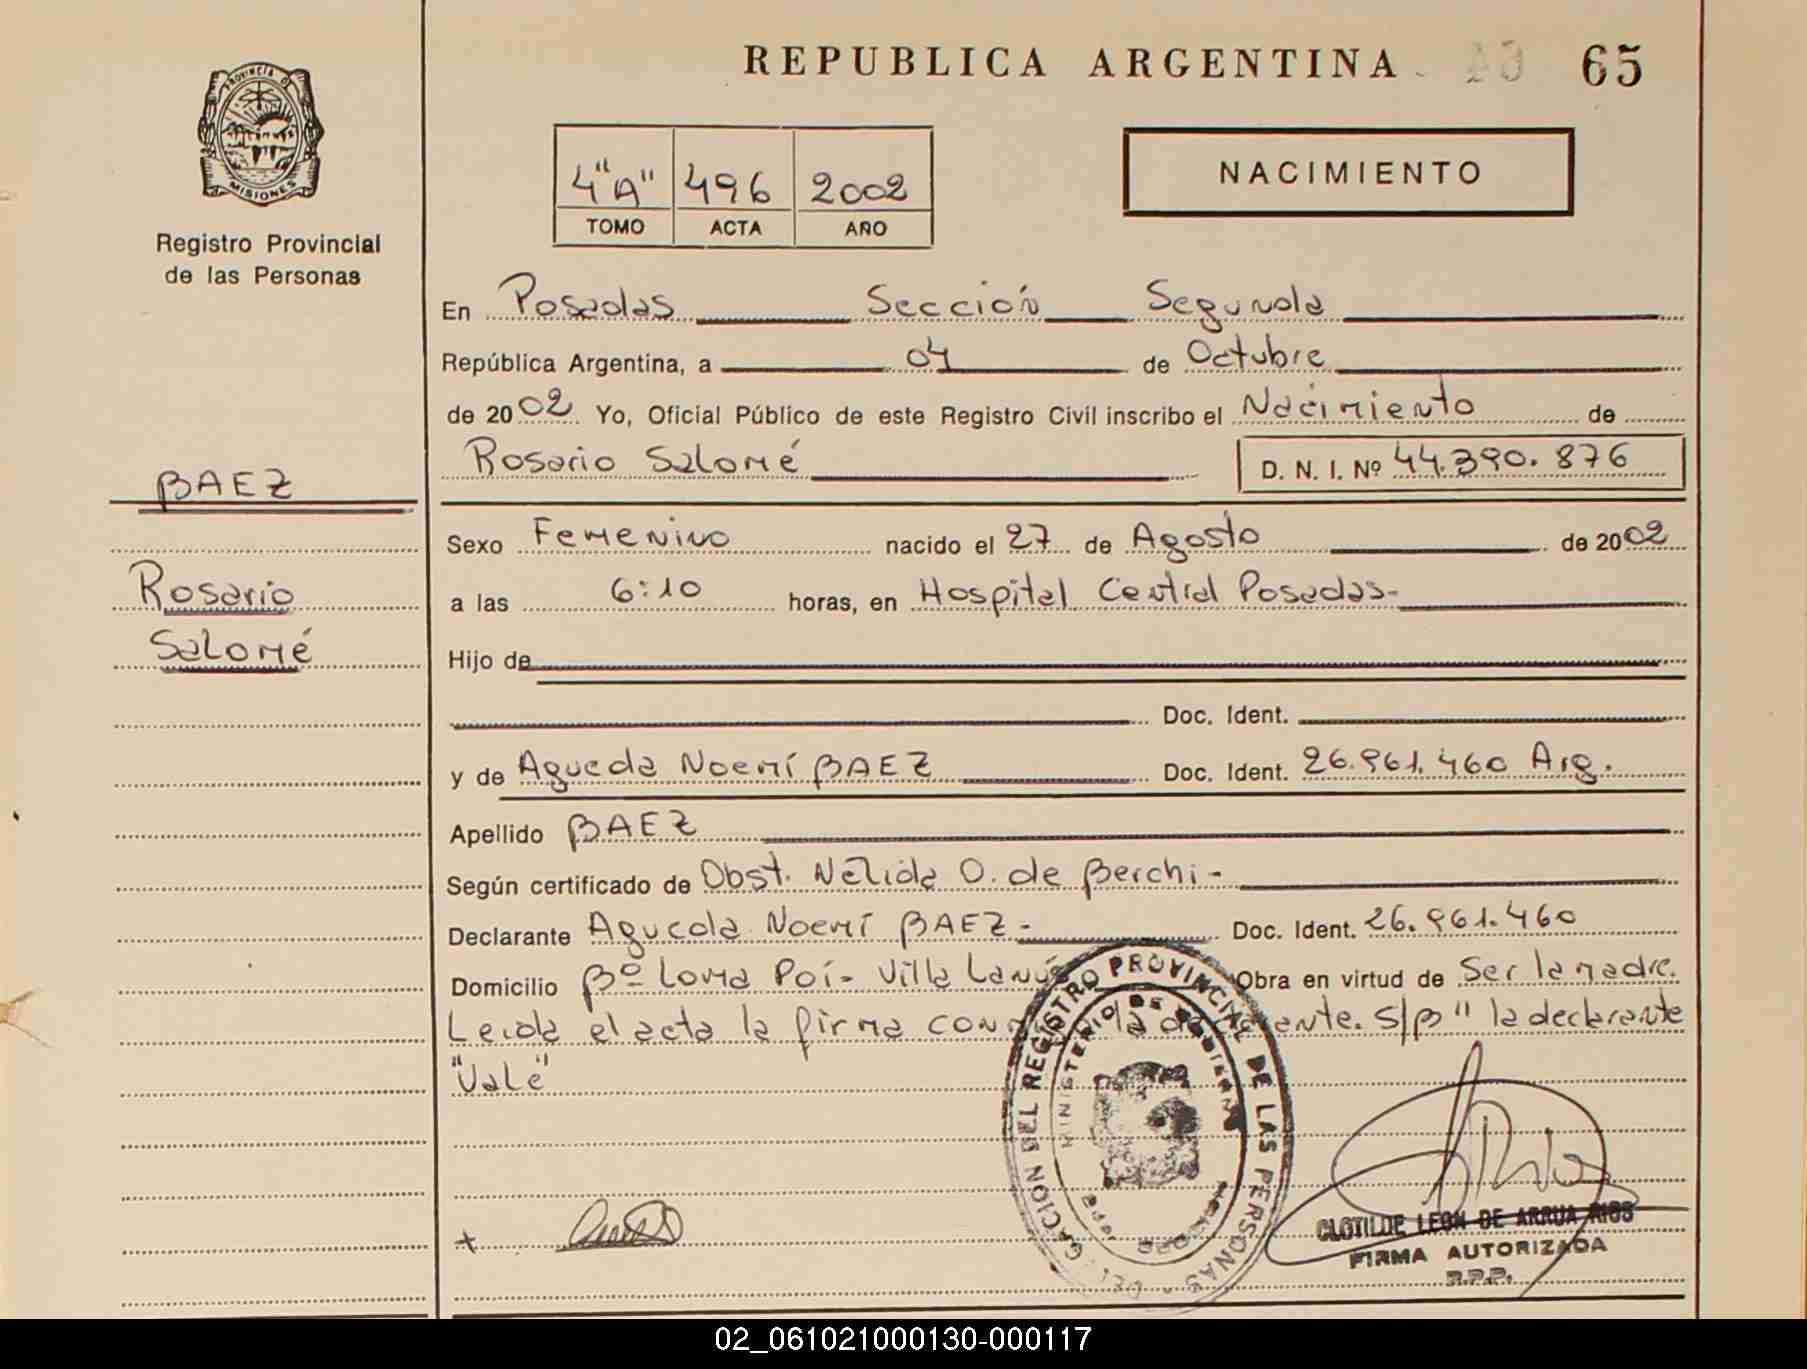 REPUBLICA ARGENTINA 65
PROVINCIA DE MISIONES
4"A" 496 2002
TOMO ACTA AÑO
NACIMIENTO
Registro Provincial
de las Personas
BAEZ
Rosario
Salomé
En Posadas Sección Segunda
República Argentina, a 04 de Octubre
de 2002 Yo, Oficial Público de este Registro Civil inscribo el Nacimiento de
Rosario Salomé D. N. I. Nº 44.390.876
Sexo Femenino nacido el 27 de Agosto de 2002
a las 6:10 horas, en Hospital Central Posadas-
Hijo de
Doc. Ident.
y de Agueda Noemí BAEZ Doc. Ident. 26.961.460 Arg.
Apellido BAEZ
Según certificado de Obst. Nélida O. de Berchi-
Declarante Agueda Noemí BAEZ- Doc. Ident. 26.961.460
Domicilio Bº Loma Poí- Villa Lanús Obra en virtud de Ser la madre.
Leida el acta la firma la declarante. S/B" la declarante
"Vale"
REGISTRO PROVINCIAL DE LAS PERSONAS
MINISTERIO DE GOBIERNO
CLOTILDE LEON DE ARRUA RIOS
FIRMA AUTORIZADA
R.P.P.
02_061021000130-000117